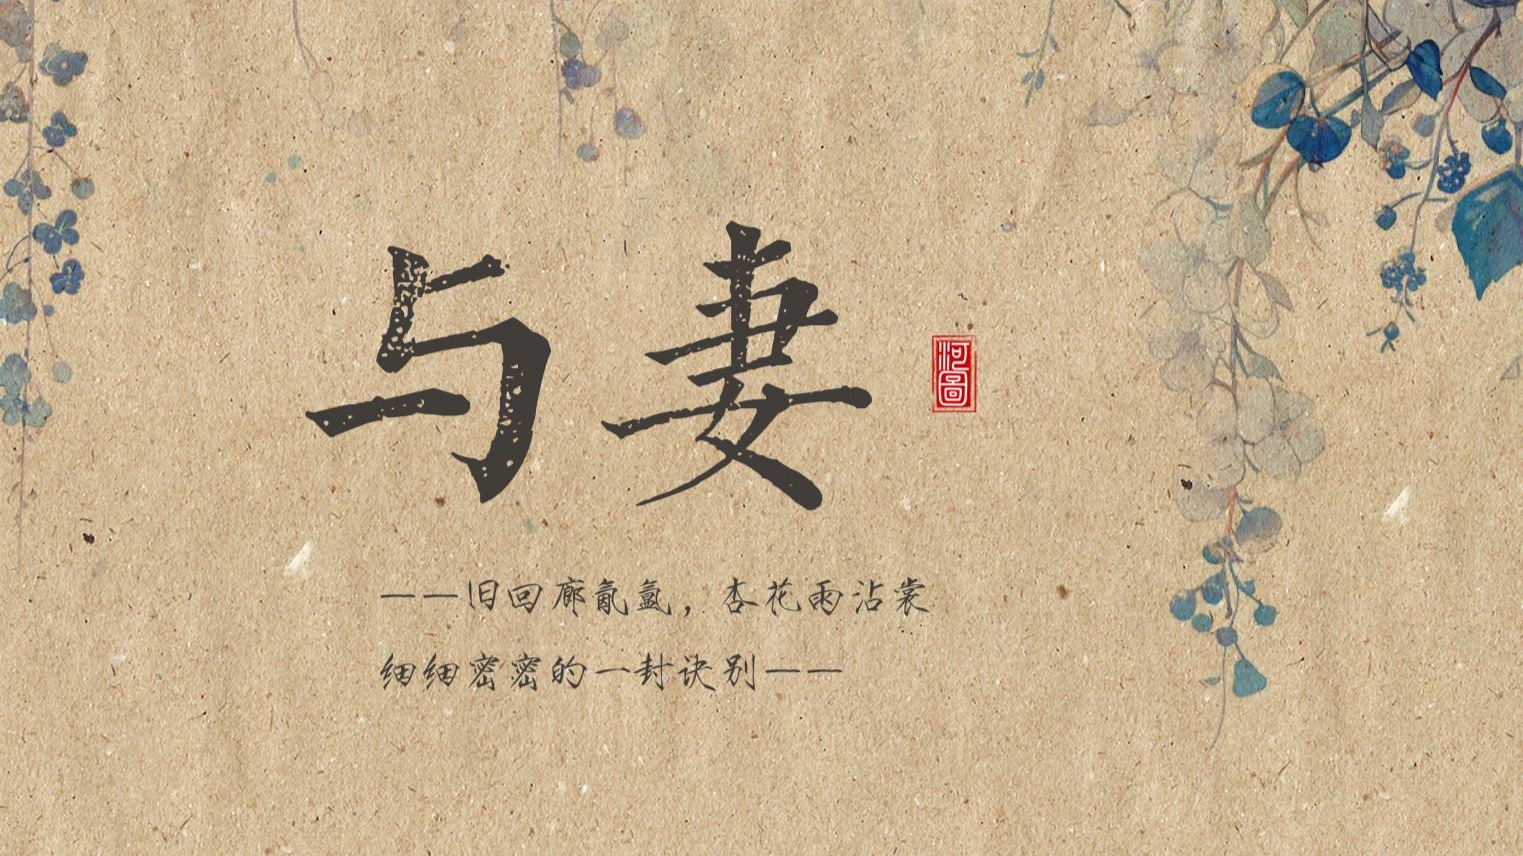 与妻
河圖
——旧回廊氤氲，杏花雨沾裳
细细密密的一封诀别——